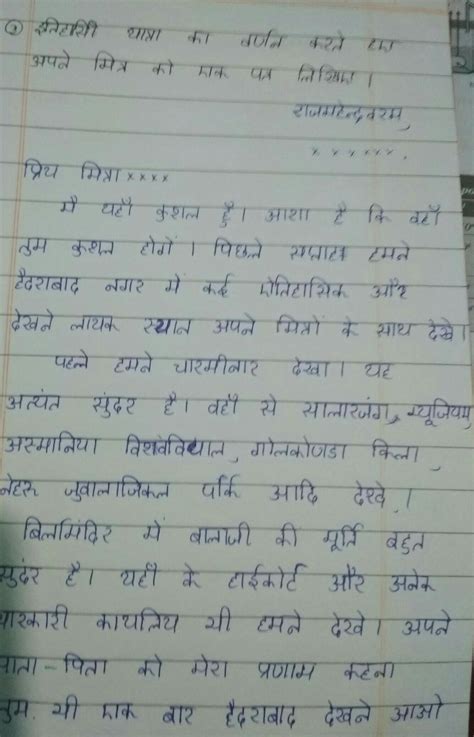 ऐतिहासी यात्रा का वर्णन करते हुए
अपने मित्र को एक पत्र लिखिए।
राजमहेन्द्रवरम,
x x x x x x .
प्रिय मित्रा x x x x
मै यहाँ कुशल हुँ। आशा है कि वहाँ
तुम कुशल होगें। पिछले सप्ताह हमने
हैदराबाद नगर में कई ऐतिहासिक और
देखने लायक स्थान अपने मित्रों के साथ देखे।
पहले हमने चारमीनार देखा। यह
अत्यंत सुंदर है। वहाँ से सालारजंग, म्यूजियम,
अस्मानिया विशवेविद्याल, गोलकोणडा किला,
नेहरू जुवालाजिकल पार्क आदि देखे,।
बिर्लामंदिर में बालाजी की मूर्ति बहुत
सुंदर है। यहाँ के हाईकोर्ट और अनेक
सारकारी कार्यालय भी हमने देखे। अपने
माता-पिता को मेरा प्रणाम कहना
तुम भी एक बार हैदराबाद देखने आओ